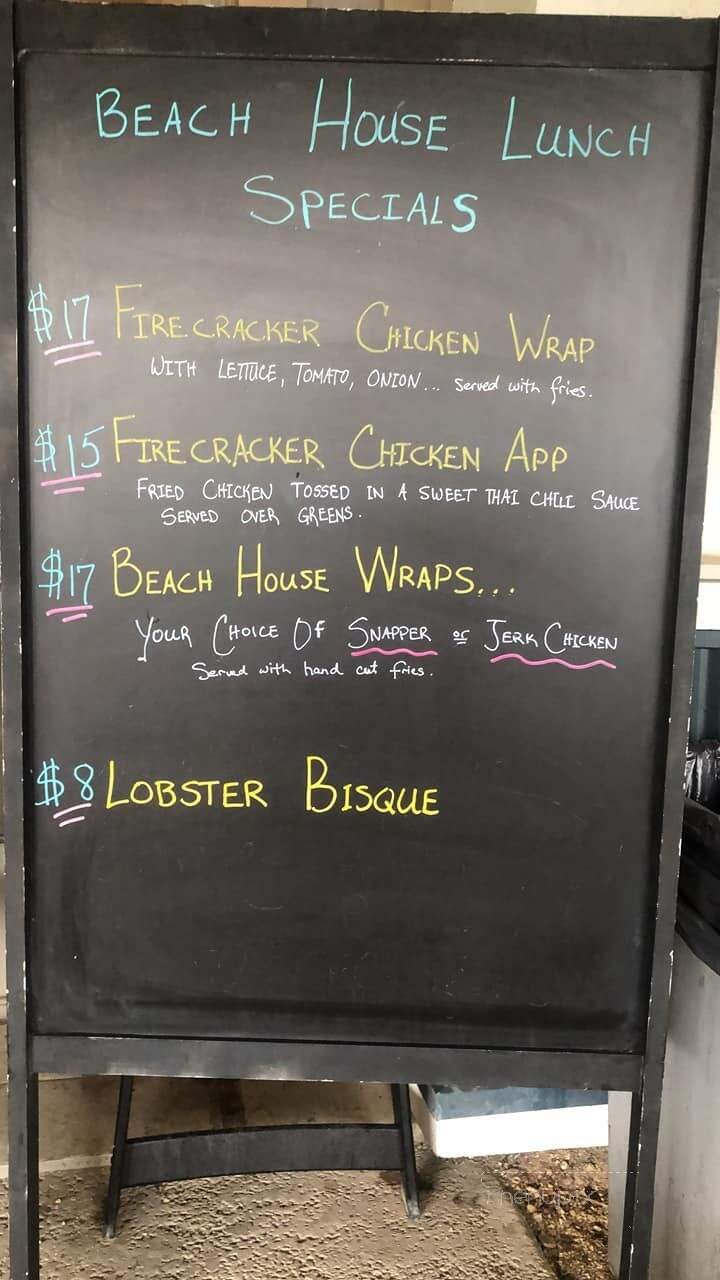 BEACH HOUSE LUNCH
SPECIALS
$17 FIRECRACKER CHICKEN WRAP
WITH LETTUCE, TOMATO, ONION... served with fries.
$15 FIRECRACKER CHICKEN APP
FRIED CHICKEN TOSSED IN A SWEET THAI CHILI SAUCE
SERVED OVER GREENS.
$17 BEACH HOUSE WRAPS...
YOUR CHOICE OF SNAPPER or JERK CHICKEN
Served with hand cut fries.
$8 LOBSTER BISQUE